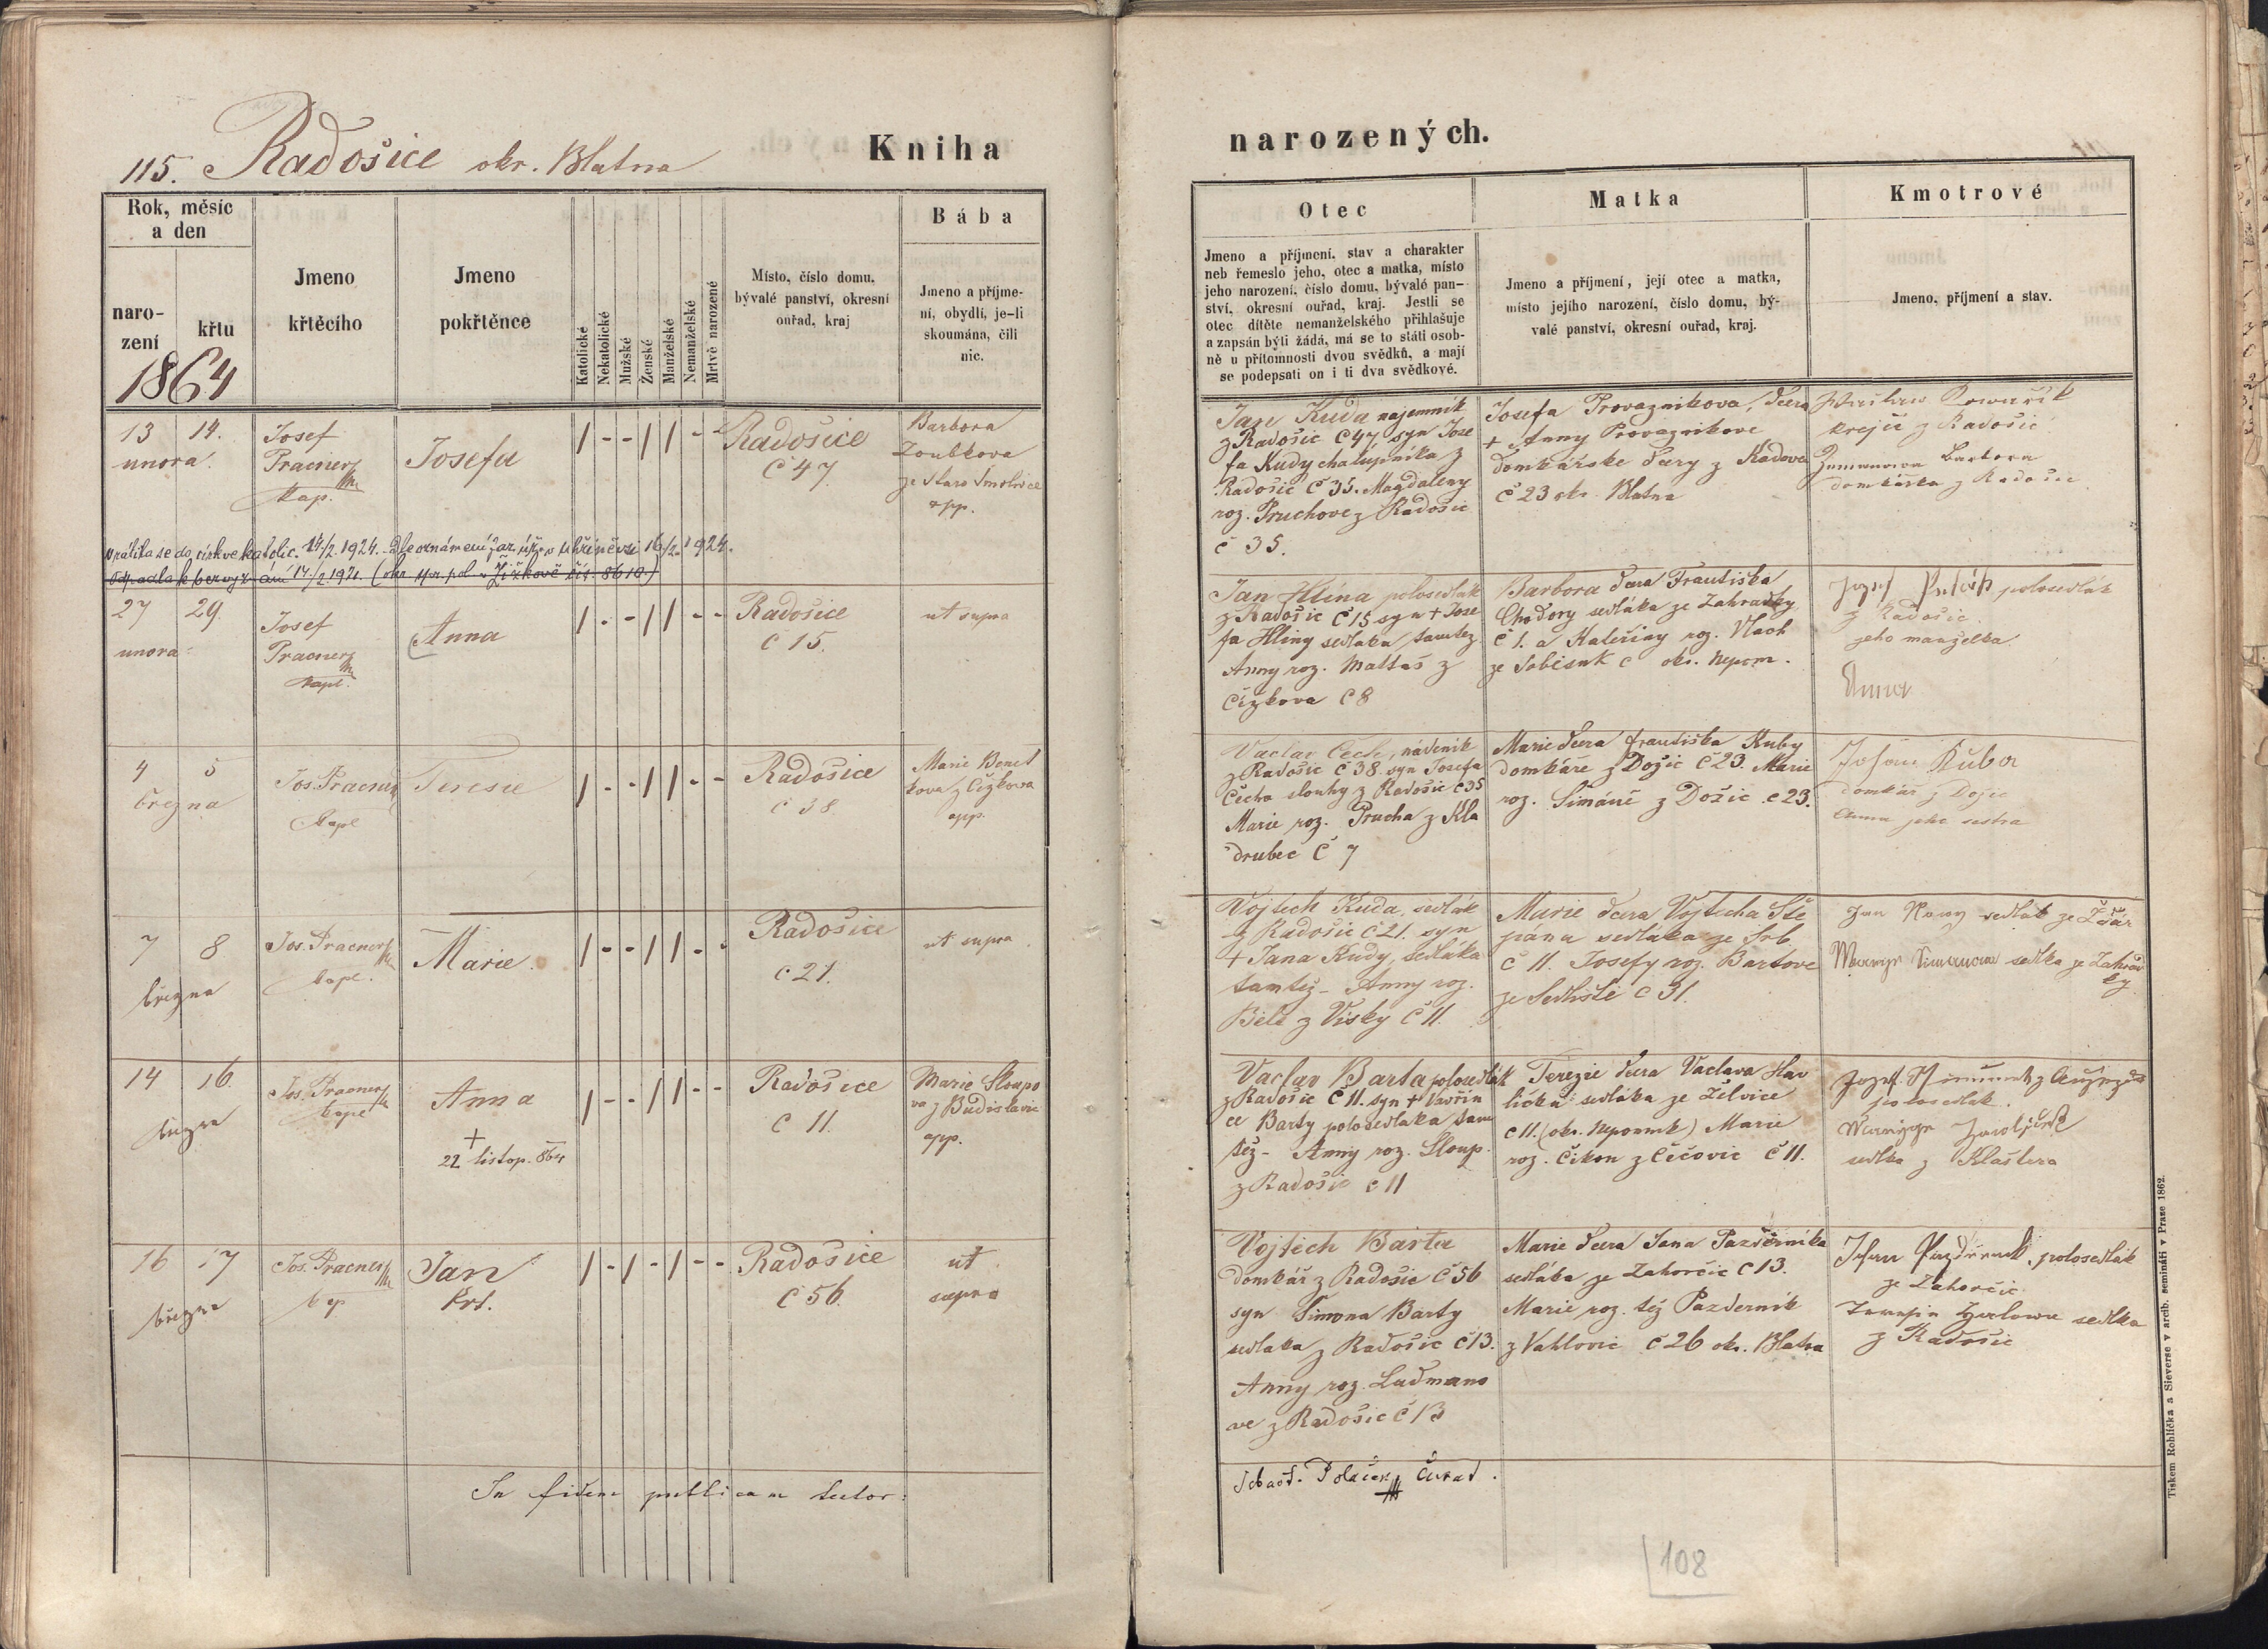 115. Radošice okr. Blatna
Kniha
narozených.
Rok, měsíc
a den
naro-
zení
křtu
1864
Jmeno
křtěcího
Jmeno
pokřtěnce
Katolické
Nekatolické
Mužské
Ženské
Manželské
Nemanželské
Mrtvě narozené
Místo, číslo domu,
bývalé panství, okresní
ouřad, kraj
Bába
Jmeno a příjme-
ní, obydlí, je-li
skoumána, čili
nic.
Otec
Jmeno a příjmení, stav a charakter
neb řemeslo jeho, otec a matka, místo
jeho narození, číslo domu, bývalé pan-
ství, okresní ouřad, kraj. Jestli se
otec dítěte nemanželského přihlašuje
a zapsán býti žádá, má se to státi osob-
ně u přítomnosti dvou svědků, a mají
se podepsati on i ti dva svědkové.
Matka
Jmeno a příjmení, její otec a matka,
místo jejího narození, číslo domu, bý-
valé panství, okresní ouřad, kraj.
Kmotrové
Jmeno, příjmení a stav.
13 14.
unora.
Josef
Pracner
Kap.
Josefa
1 - - 1 1 - -
Radošice
č 47.
Barbora
Zoubkova
ze Stare Smolivce
app.
Jan Kuda najemnik
z Radošic č 47, syn Jose
fa Kudy chalupnika z
Radošic č 35. Magdaleny
roz. Pruchove z Radošic
č 35.
Josefa Provaznikova, dcera
+ Anny Provaznikove
domkářske dcery z Kadova
č 23 okr. Blatna
krejčí z Radošic
Barbora
domkářka z Radošic
vrátila se do církve katolic. 14/2. 1924.
Odpadla k bezvyznání 14./2. 1921. (okr. spr. pol. v Žižkově čís. 8610.)
27 29.
unora
Josef
Pracner
Kapl.
Anna
1 - - 1 1 - -
Radošice
č 15.
ut supra
Jan Hlína polosedlák
z Radošic č 15 syn + Jose
fa Hliny sedlaka, tamtez
Anny roz. Mattaš z
Čížkova č 8
Barbora dcera Františka
Chodory sedláka ze Zahradky
č 1. a Kateřiny roz. Vlach
ze Sobisuk č okr. Nepom.
Jozef polosedlák
z Radošic.
jeho manželka
Anna
4 5
března
Jos. Pracner
Kapl
Teresie
1 - - 1 1 - -
Radošice
č 38
Marie Benet
kova z Čížkova
app.
Vaclav Čech, nádeník
z Radošic č 38. syn Josefa
Čecha slouhy z Radošic č 35
Marie roz. Prucha z Kla
drubec č 7
Marie dcera františka Kuby
domkáře z Dožic č 23. Marie
roz. Šimáně z Dožic č 23.
Johan Kuba
domkář z Dožic
Anna jeho sestra
7 8
března
Jos. Pracner
kapl.
Marie
1 - - 1 1 - -
Radošice
č 21.
ut supra
Vojtěch Kuda, sedlák
z Radošic č 21. syn
+ Jana Kudy, sedláka
tamtéž - Anny roz.
Bělé z Visky č 11.
Marie dcera Vojtecha Ště
pána sedláka ze Srb
č 11. Josefy roz. Bartove
ze Sedliště č 31.
Jan Nowy sedlák ze Ždár
sedlka ze Zahrad
ky
14 16.
března
Jos. Pracner
kapl
Anna
+
22 listop. 864
1 - - 1 1 - -
Radošice
č 11.
Marie Sloupo
va z Budislavic
app.
Vaclav Barta polosedlák
z Radošic č 11. syn + Vavřin
ce Barty polosedlaka tam
též - Anny roz. Sloup.
z Radošic č 11
Terezie dcera Vaclava Hav
lička sedláka ze Želvice
č 11. (okr. Nepomuk) Marie
roz. Čikon z Čečovic č 11.
Jozef
polosedlak.
sedlka z Klaštera
16 17
března
Jos. Pracner
kap
Jan
Krt.
1 - 1 - 1 - -
Radošice
č 56.
ut
supra
Vojtěch Barta
domkář z Radošic č 56
syn Šimona Barty
sedlaka z Radošic č 13.
Anny roz. Ladmano
ve z Radošic č 13
Marie dcera Jana Pazdernika
sedláka ze Zahorčic č 13.
Marie roz. též Pazdernik
z Vahlovic č 26 okr. Blatna
Johan Pazdernik, polosedlák
ze Zahorčic
sedlka
z Radošic
In fidem publicam
Polaček
108
Tiskem Rohlíčka a Sieverse v arcib. semináři v Praze 1862.